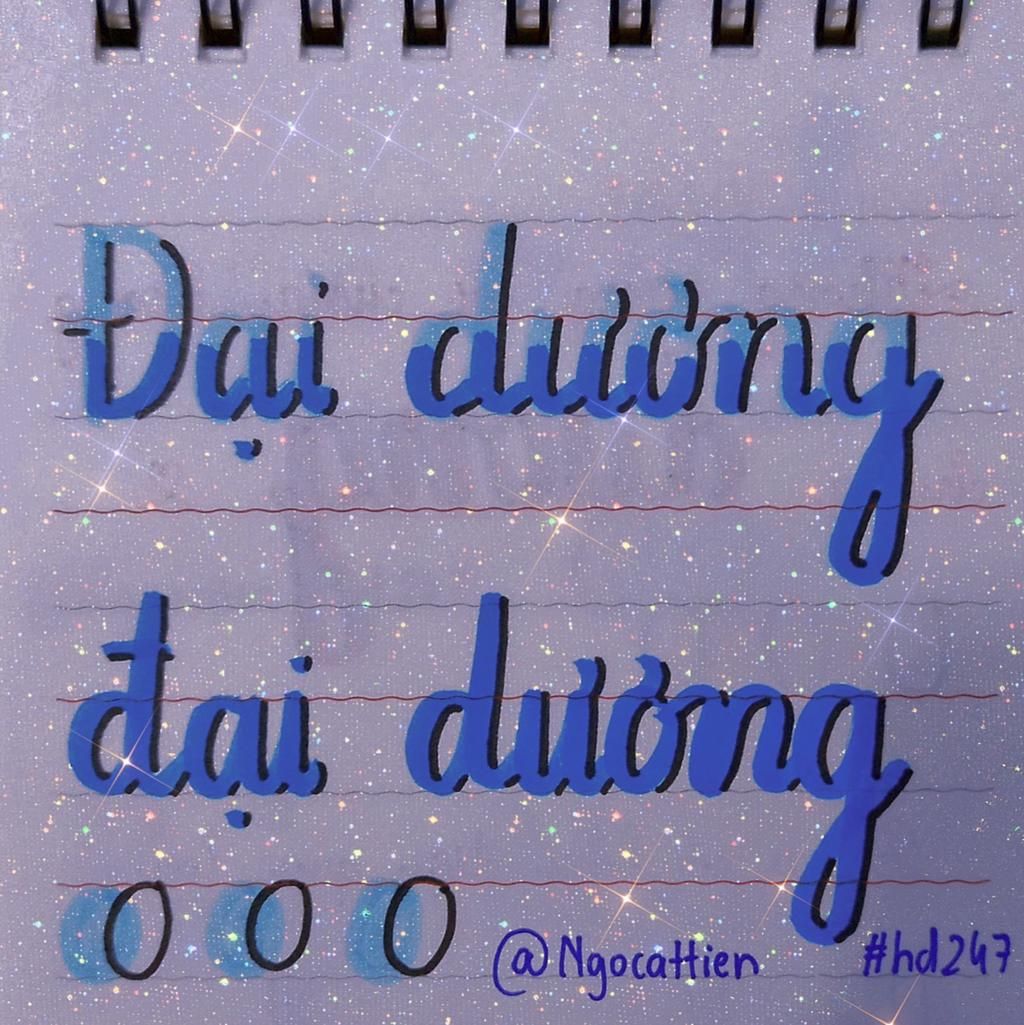 Đại dương
đại dương
000 @Ngocattien #hd247